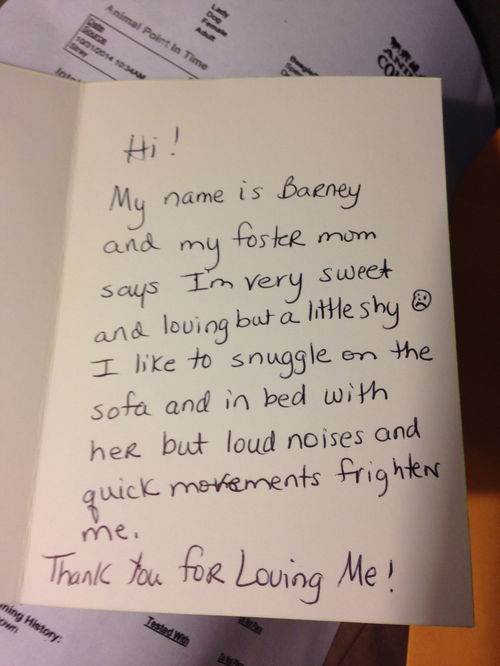 Animal Point in Time
Lady
Dog
Female
Adult
Date:
Source:
10/31/2014 10:34AM
Stray
Hi!
My name is Barney
and my foster mom
says I'm very sweet
and loving but a little shy ☹
I like to snuggle on the
sofa and in bed with
her but loud noises and
quick movements frighten
me.
Thank You for Loving Me!
ning History:
Tested With